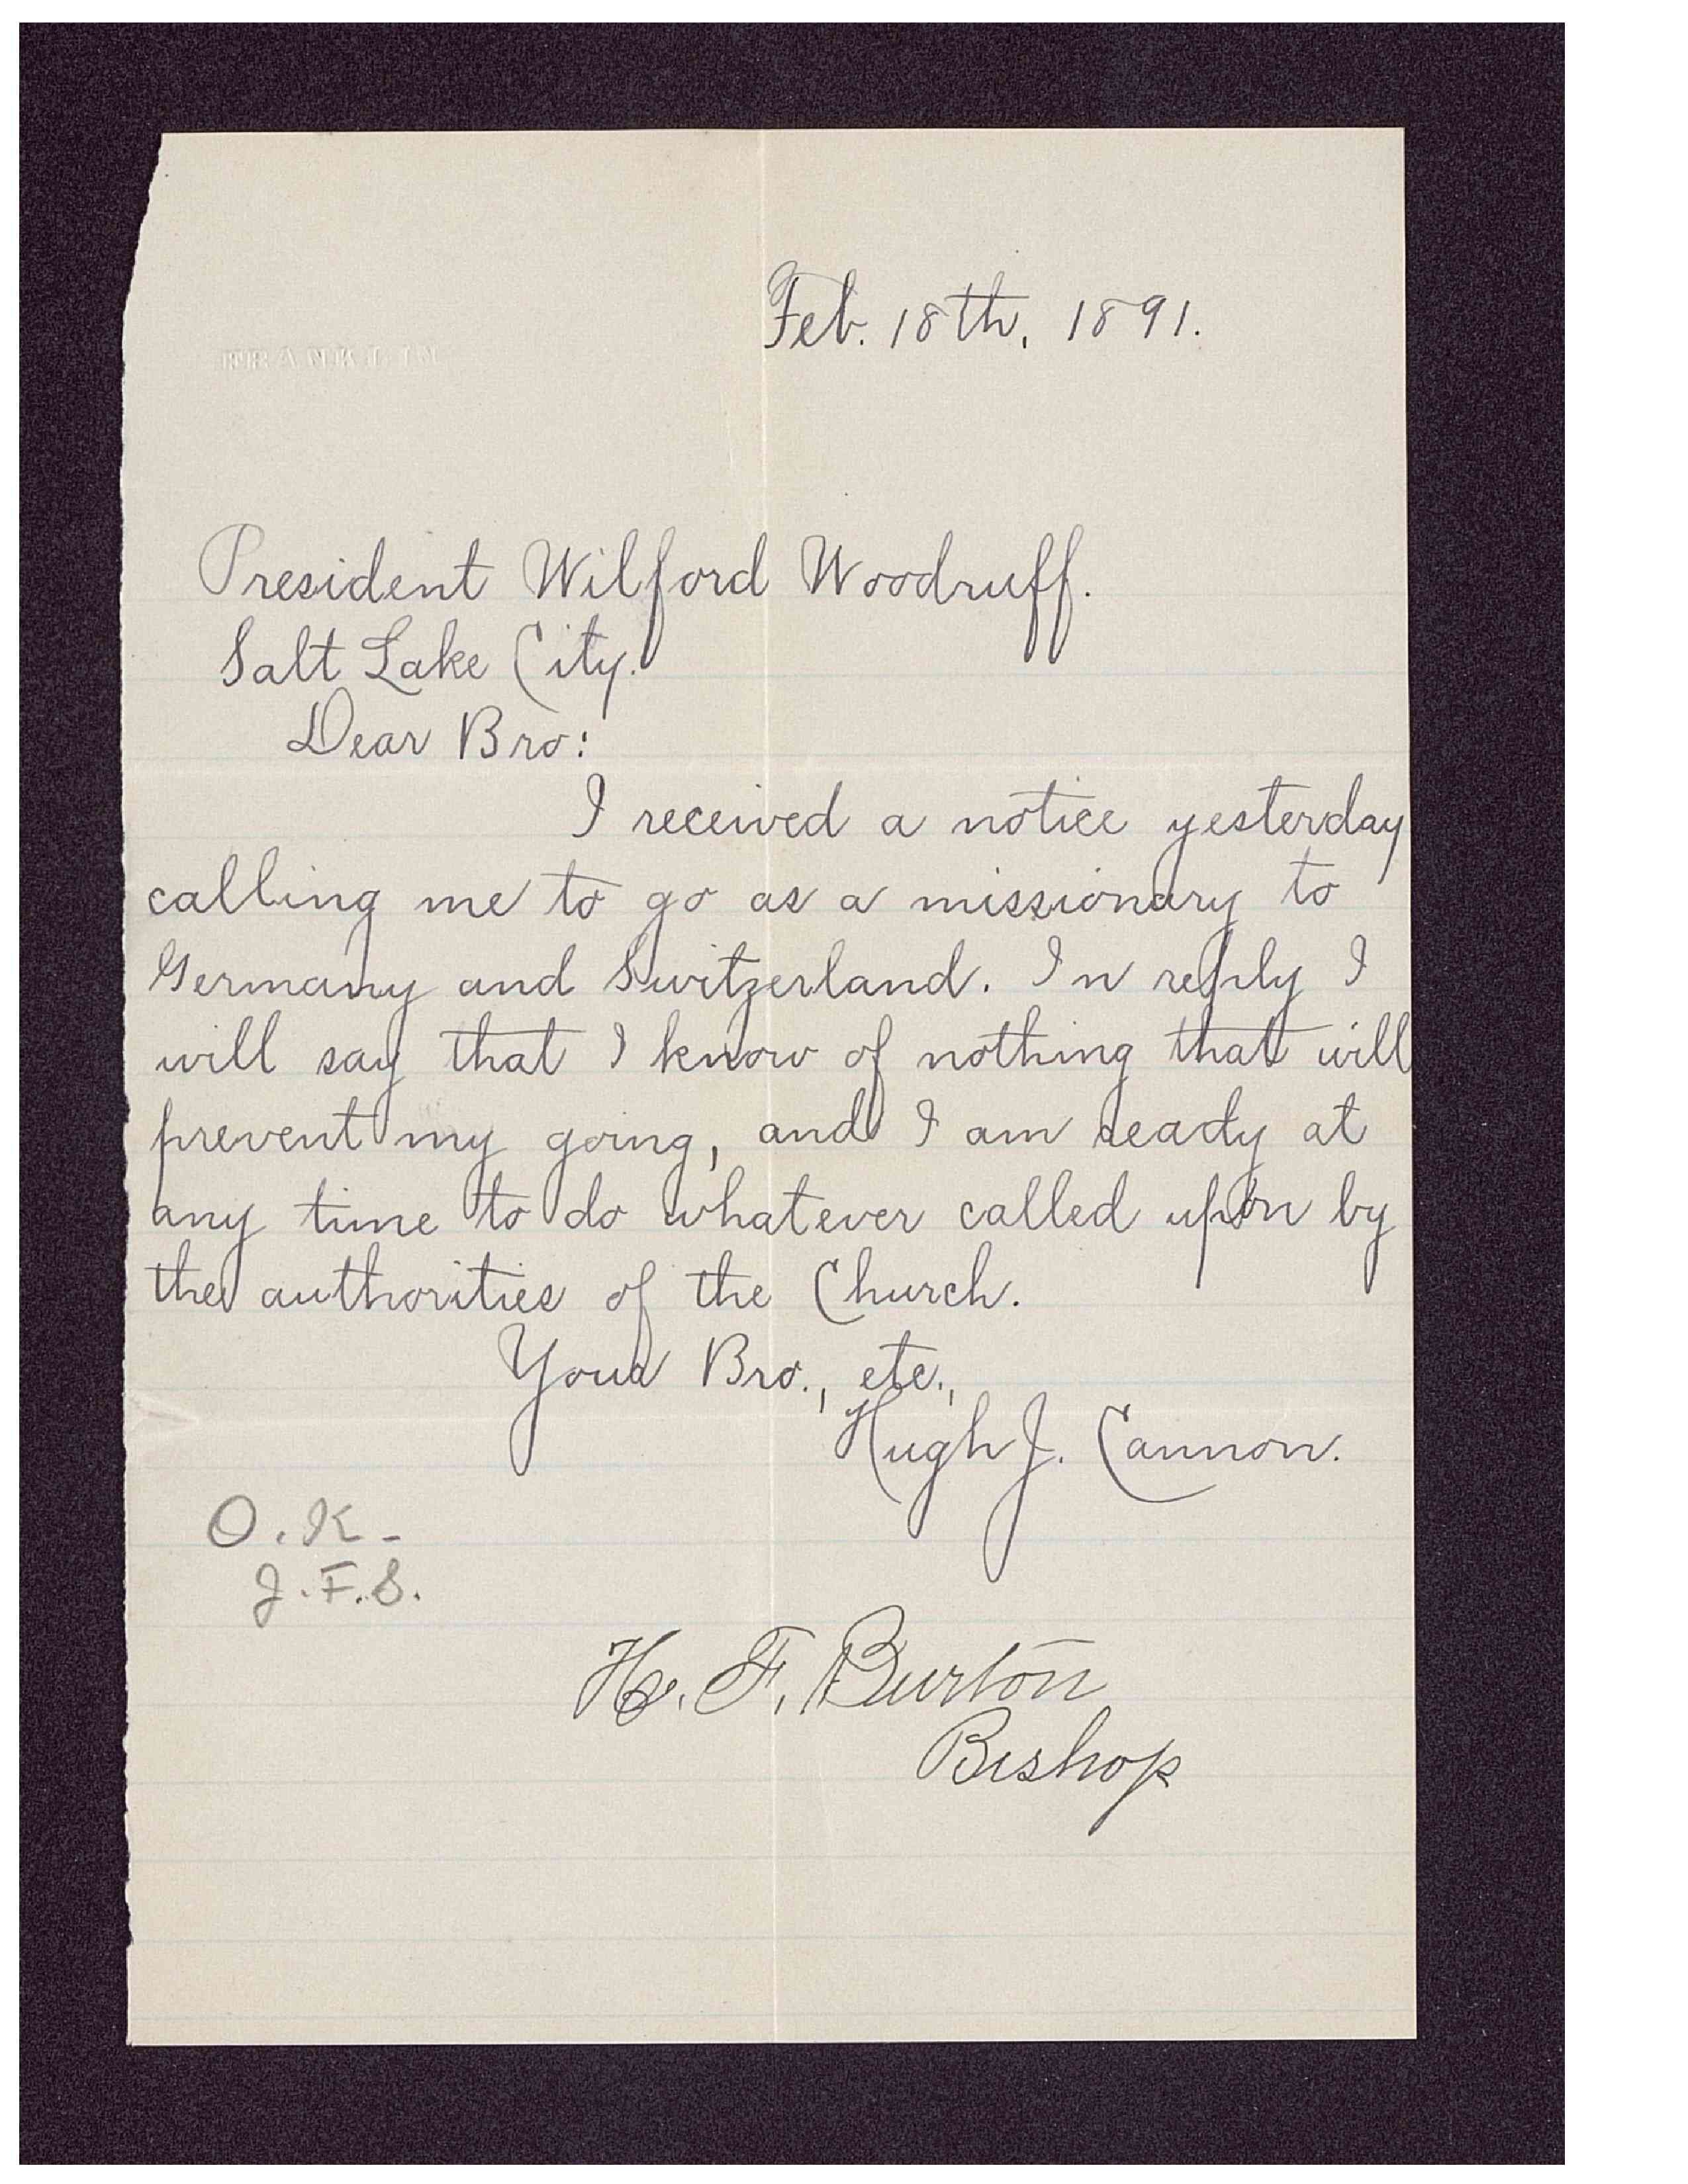 Feb. 18th, 1891.
President Wilford Woodruff.
Salt Lake City.
Dear Bro:
I received a notice yesterday
calling me to go as a missionary to
Germany and Switzerland. In reply I
will say that I know of nothing that will
prevent my going, and I am ready at
any time to do whatever called upon by
the authorities of the Church.
Your Bro., etc.,
Hugh J. Cannon.
O.K-
J.F.S.
H. F. Burton
Bishop